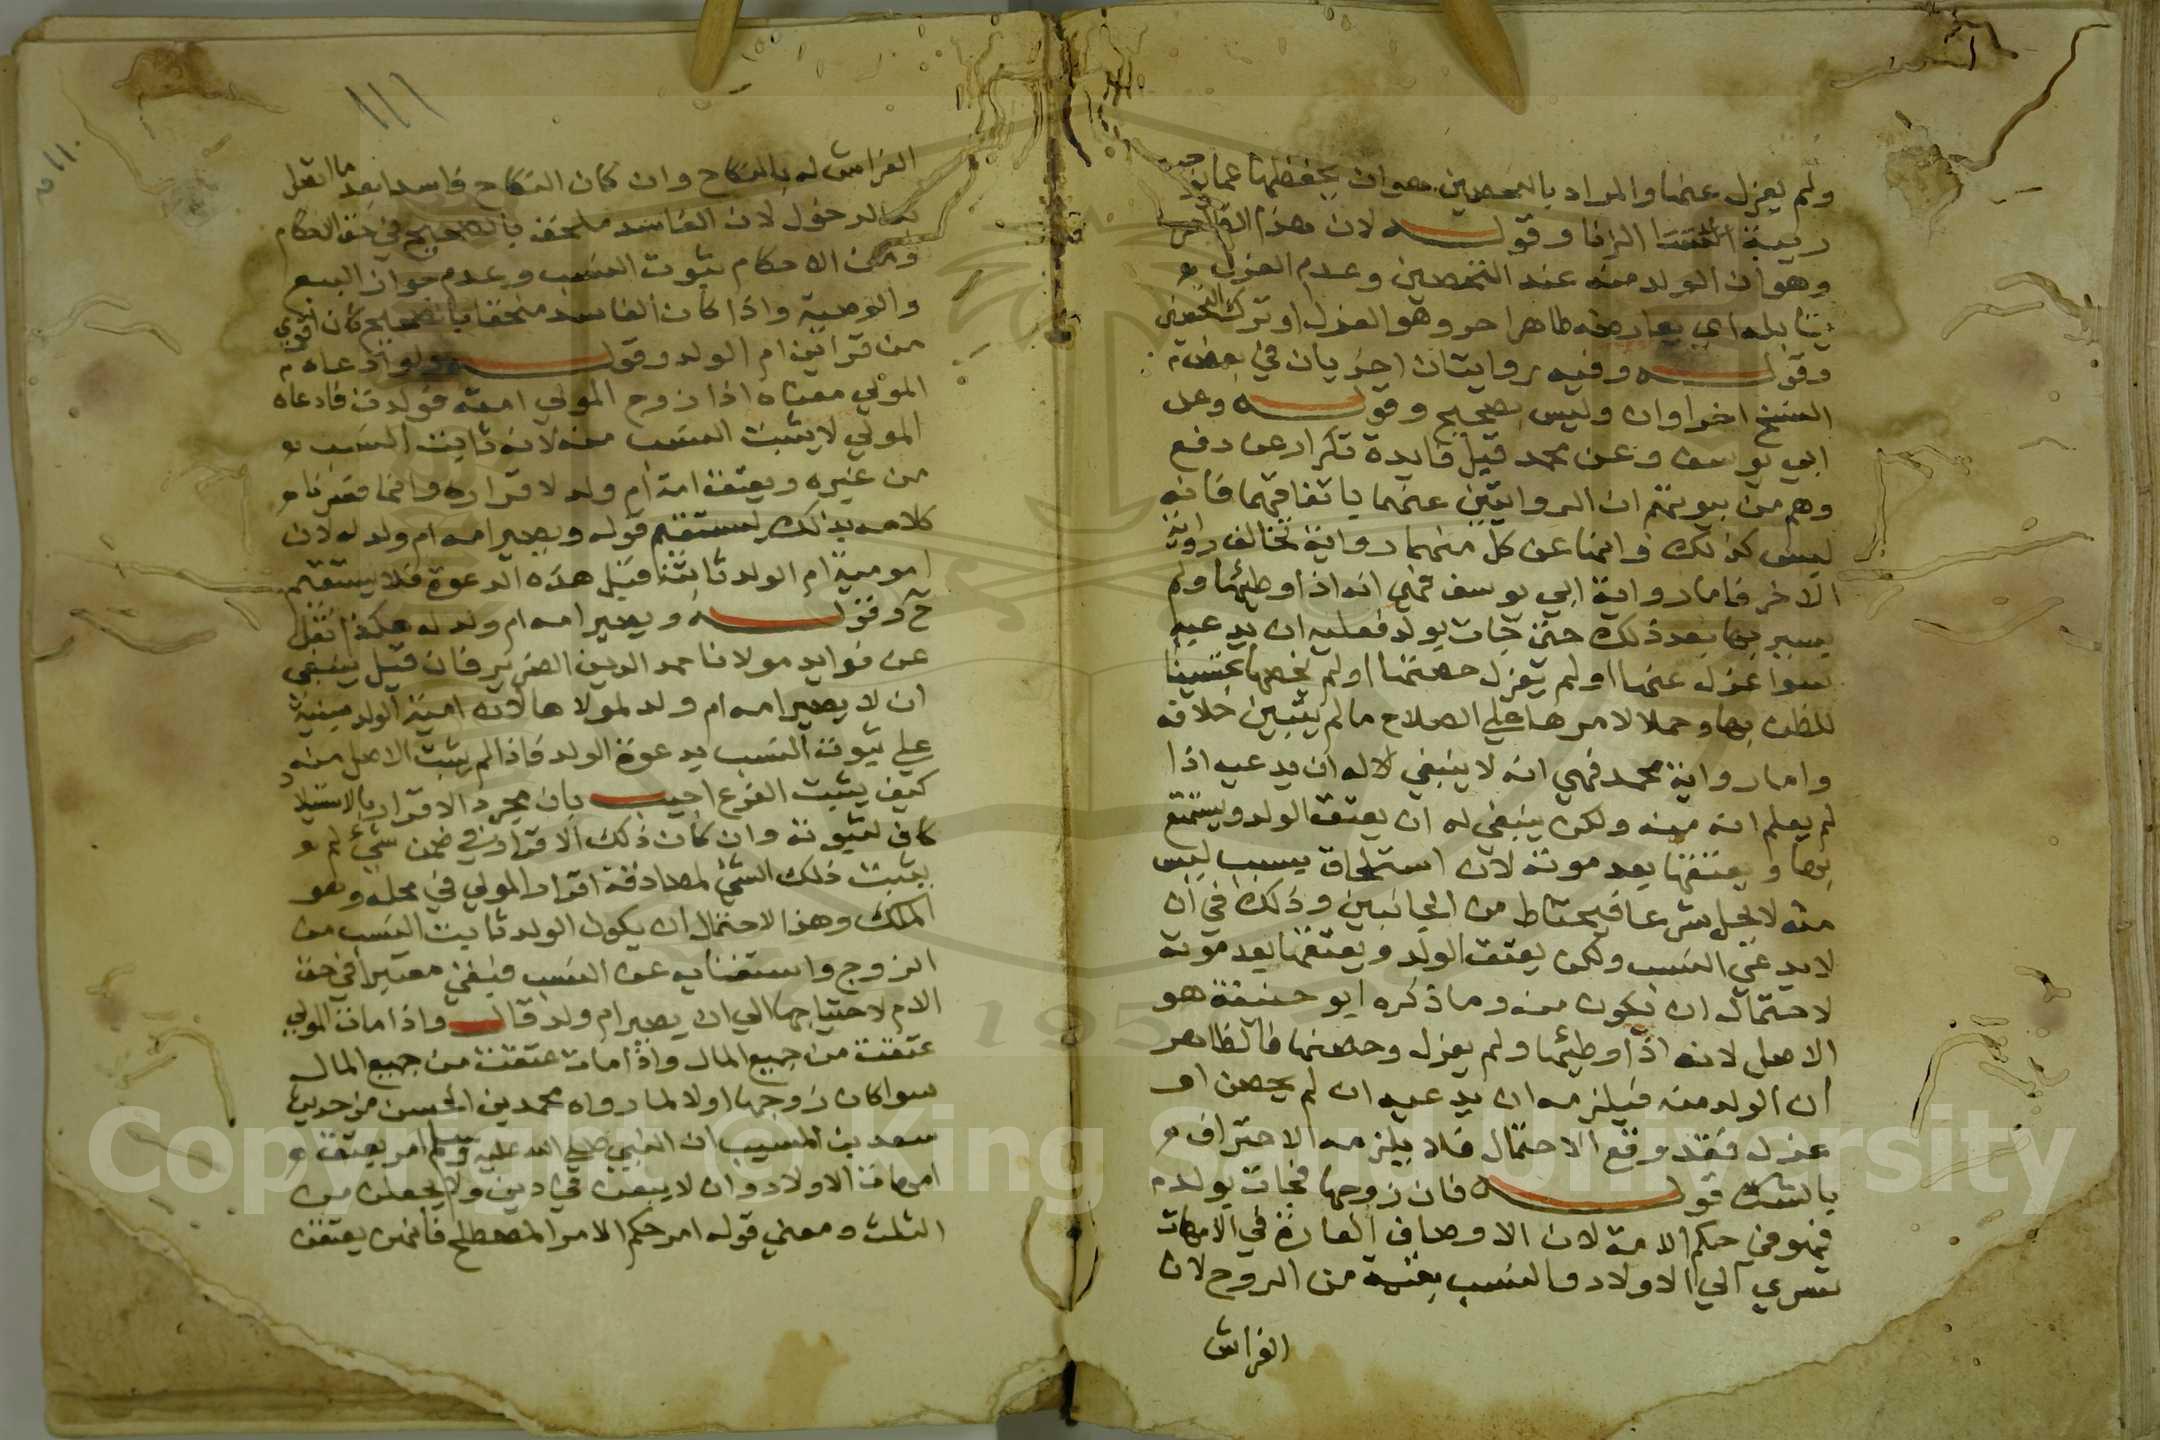 ولم يعزل عنها والمراد بالتحصين هو ان يحفظها عما يوجب
ريبة الزنا وقوله لان هذا الظاهر
وهو ان الولد منه عند التحصين وعدم العزل
يقابله اي يعارضه ظاهر اخر وهو العزل او ترك التحصين
وقوله وفيه روايتان اخريان في بعض
النسخ اخراوان وليس بصحيح وقوله وعن
ابي يوسف وعن محمد قيل فايدة تكرار عن دفع
وهم من يتوهم ان الروايتين عنهما باتفاقهما فانه
ليس كذلك وانما عن كل منهما رواية تخالف رواية
الاخر فاما رواية ابي يوسف فهي انه اذا وطيئها ولم
يستبرها بعد ذلك حتى جات بولد فعليه ان يدعيه
سوا عزل عنها او لم يعزل حصنها او لم يحصنها تحسينا
للظن بها وحملا لامرها علي الصلاح ما لم يتبين خلافه
واما رواية محمد فهي انه لا ينبغي له ان يدعيه اذا
لم يعلم انه منه ولكن ينبغي له ان يعتق الولد ويستمتع
بها ويعتقها بعد موته لان استلحاق نسب ليس
منه لا يحل شرعا فيحتاط من الجانبين وذلك في ان
لا يدعي النسب ولكن يعتق الولد ويعتقها بعد موته
لاحتمال ان يكون منه وما ذكره ابو حنيفة هو
الاصل لانه اذا وطيئها ولم يعزل وحصنها فالظاهر
ان الولد منه فيلزمه ان يدعيه ان لم يحصن او
عزل فقد وقع الاحتمال فلا يلزمه الاعتراف
بالشك قوله فان زوجها فجات بولد
فهو في حكم الامة لان الاوصاف القارة في الامهات
تسري الي الاولاد والنسب يثبت من الزوج لان
الفراش
١١١
الفراش له بالنكاح وان كان النكاح فاسدا بعد ما اتصل
به الدخول لان الفاسد ملحق بالصحيح في حق الاحكام
ومن الاحكام ثبوت النسب وعدم جواز البيع
والوصية واذا كان الفاسد ملحقا بالصحيح كان اقوي
من فراش ام الولد وقوله ولو ادعاه
المولي معناه اذا زوج المولي امته فولدت فادعاه
المولي لا يثبت النسب منه لانه ثابت النسب
من غيره ويعتق امه ام ولد لاقراره وانما فسرنا
كلامه بذلك ليستقيم قوله ويصير امه ام ولد له لان
امومية ام الولد ثابتة قبل هذه الدعوة فلا يستقيم
ح وقوله ويصير امه ام ولد له هكذا نقل
عن فوايد مولانا حمد الدين الضرير فان قيل ينبغي
ان لا يصير امه ام ولد لمولاها لان امية الولد مبنية
علي ثبوت النسب بدعوة الولد فاذا لم يثبت الاصل منه
كيف يثبت الفرع اجيب بان مجرد الاقرار بالاستيلاد
كاف لثبوته وان كان ذلك الاقرار في ضمن شيء لم
يثبت ذلك الشئ لمصادفة اقرار المولي في محله وهو
الملك وهذا لاحتمال ان يكون الولد ثابت النسب من
الزوج واستغنايه عن النسب فيبقي معتبرا في حق
الام لاحتياجها الي ان يصير ام ولد قال واذا مات المولي
عتقت من جميع المال واذا مات عتقت من جميع المال
سوا كان زوجها اولا لما رواه محمد بن الحسن من حديث
سعد بن المسيب ان النبي صلي الله عليه وسلم امر بعتق
امهات الاولاد وان لا يبعن في دين ولا يجعلن من
الثلث ومعني قوله امر حكم الامر المصطلح فانهن يعتقن
Copyright © King Saud University
1957